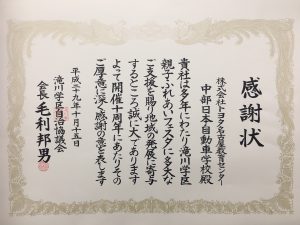 感謝状
株式会社トヨタ名古屋教育センター
中部日本自動車学校殿
貴社は多年にわたり滝川学区
親子ふれあいフェスタに多大な
ご支援を賜り地域の発展に寄与
するところ誠に大であります
よって開催十周年にあたりその
ご厚意に深く感謝の意を表します
平成二十九年十月十五日
滝川学区自治協議会
会長 毛利邦男